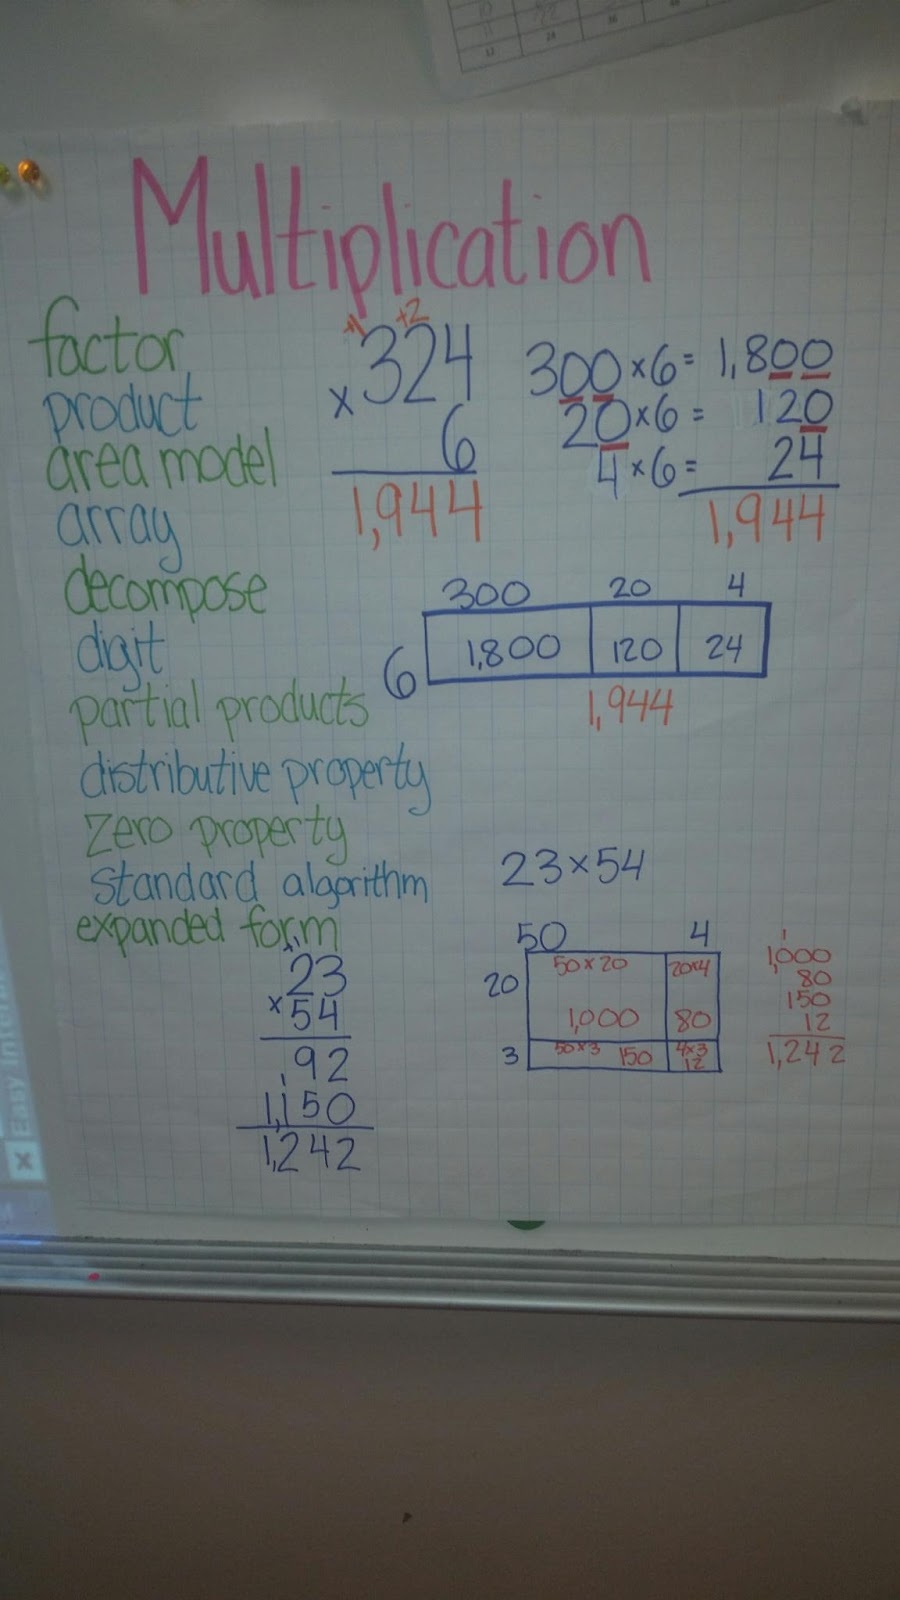 Multiplication
factor
product
area model
array
decompose
digit
partial products
distributive property
zero property
standard algorithm
expanded form
+1 +2
324
×6
1,944
300×6= 1,800
20×6= 120
4×6= 24
1,944
300 20 4
6 1,800 120 24
1,944
23
×54
92
1,150
1,242
23×54
50 4
20 50×20 20×4
1,000 80
3 50×3 150 4×3 12
1,000
80
150
12
1,242